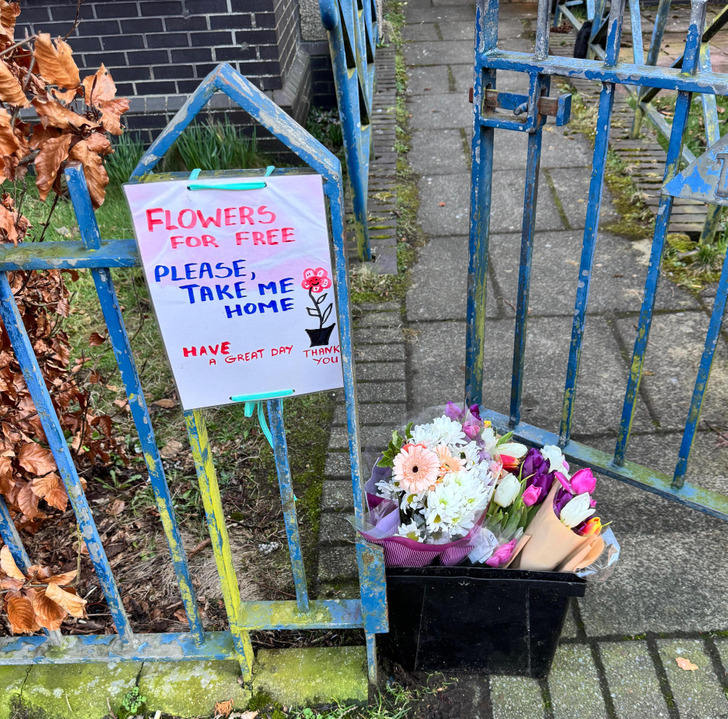 FLOWERS
FOR FREE
PLEASE,
TAKE ME
HOME
HAVE
A GREAT DAY
THANK
YOU